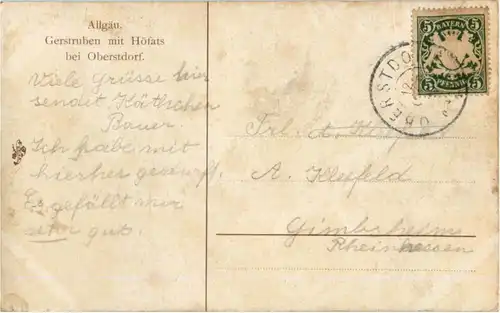 Allgäu.
Gerstruben mit Höfats
bei Oberstdorf.
Viele Grüsse hier
sendet Kätchen
Bauer.
Ich habe mit
hierher
Es gefällt mir
sehr gut.
BAYERN
5 5
5 PFENNIG 5
OBERSTDO
Frl. A.
A. Klufeld
Gimbsheim
Rheinhessen